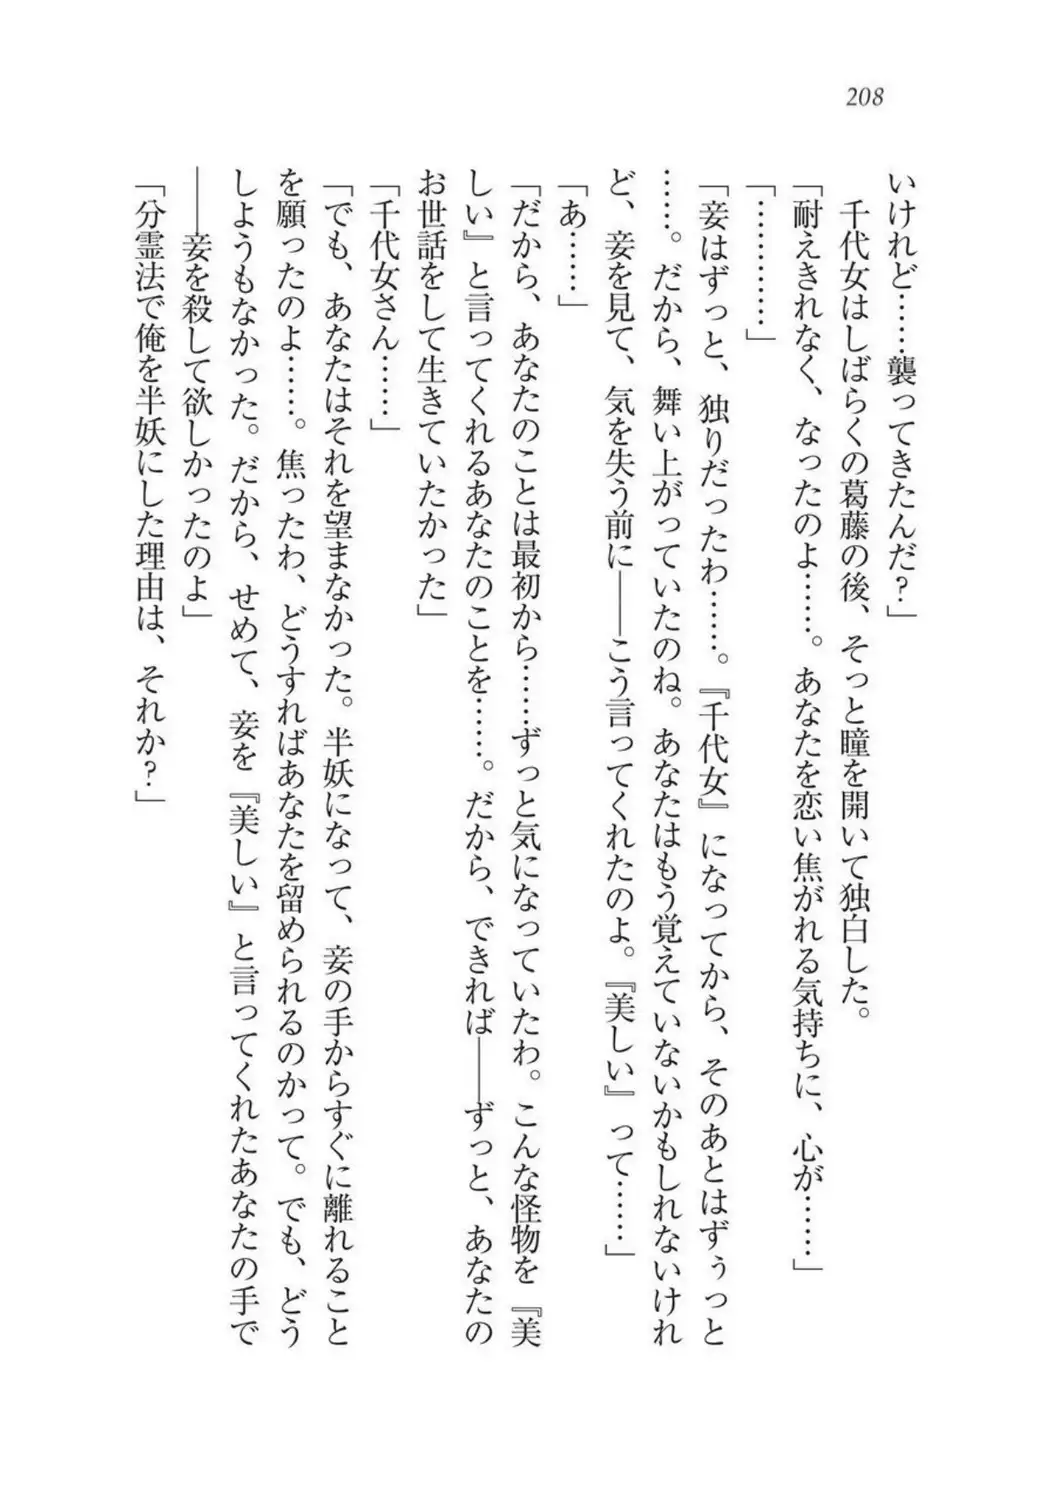 208
いけれど……襲ってきたんだ？」
千代女はしばらくの葛藤の後、そっと瞳を開いて独白した。
「耐えきれなく、なったのよ……。あなたを恋い焦がれる気持ちに、心が……」
「…………」
「妾はずっと、独りだったわ……。『千代女』になってから、そのあとはずぅっと
……。だから、舞い上がっていたのね。あなたはもう覚えていないかもしれないけれ
ど、妾を見て、気を失う前に――こう言ってくれたのよ。『美しい』って……」
「あ……」
「だから、あなたのことは最初から……ずっと気になっていたわ。こんな怪物を『美
しい』と言ってくれるあなたのことを……。だから、できれば――ずっと、あなたの
お世話をして生きていたかった」
「千代女さん……」
「でも、あなたはそれを望まなかった。半妖になって、妾の手からすぐに離れること
を願ったのよ……。焦ったわ、どうすればあなたを留められるのかって。でも、どう
しようもなかった。だから、せめて、妾を『美しい』と言ってくれたあなたの手で
――妾を殺して欲しかったのよ」
「分霊法で俺を半妖にした理由は、それか？」